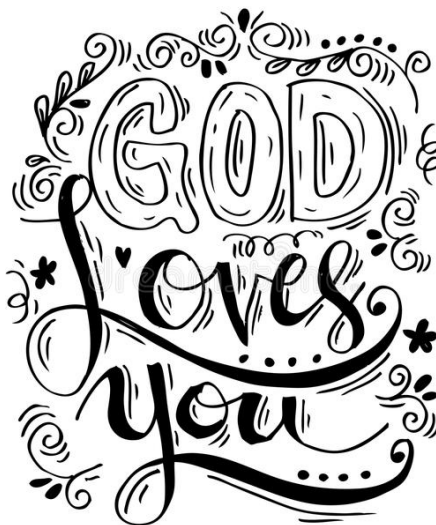 GOD
Loves
you